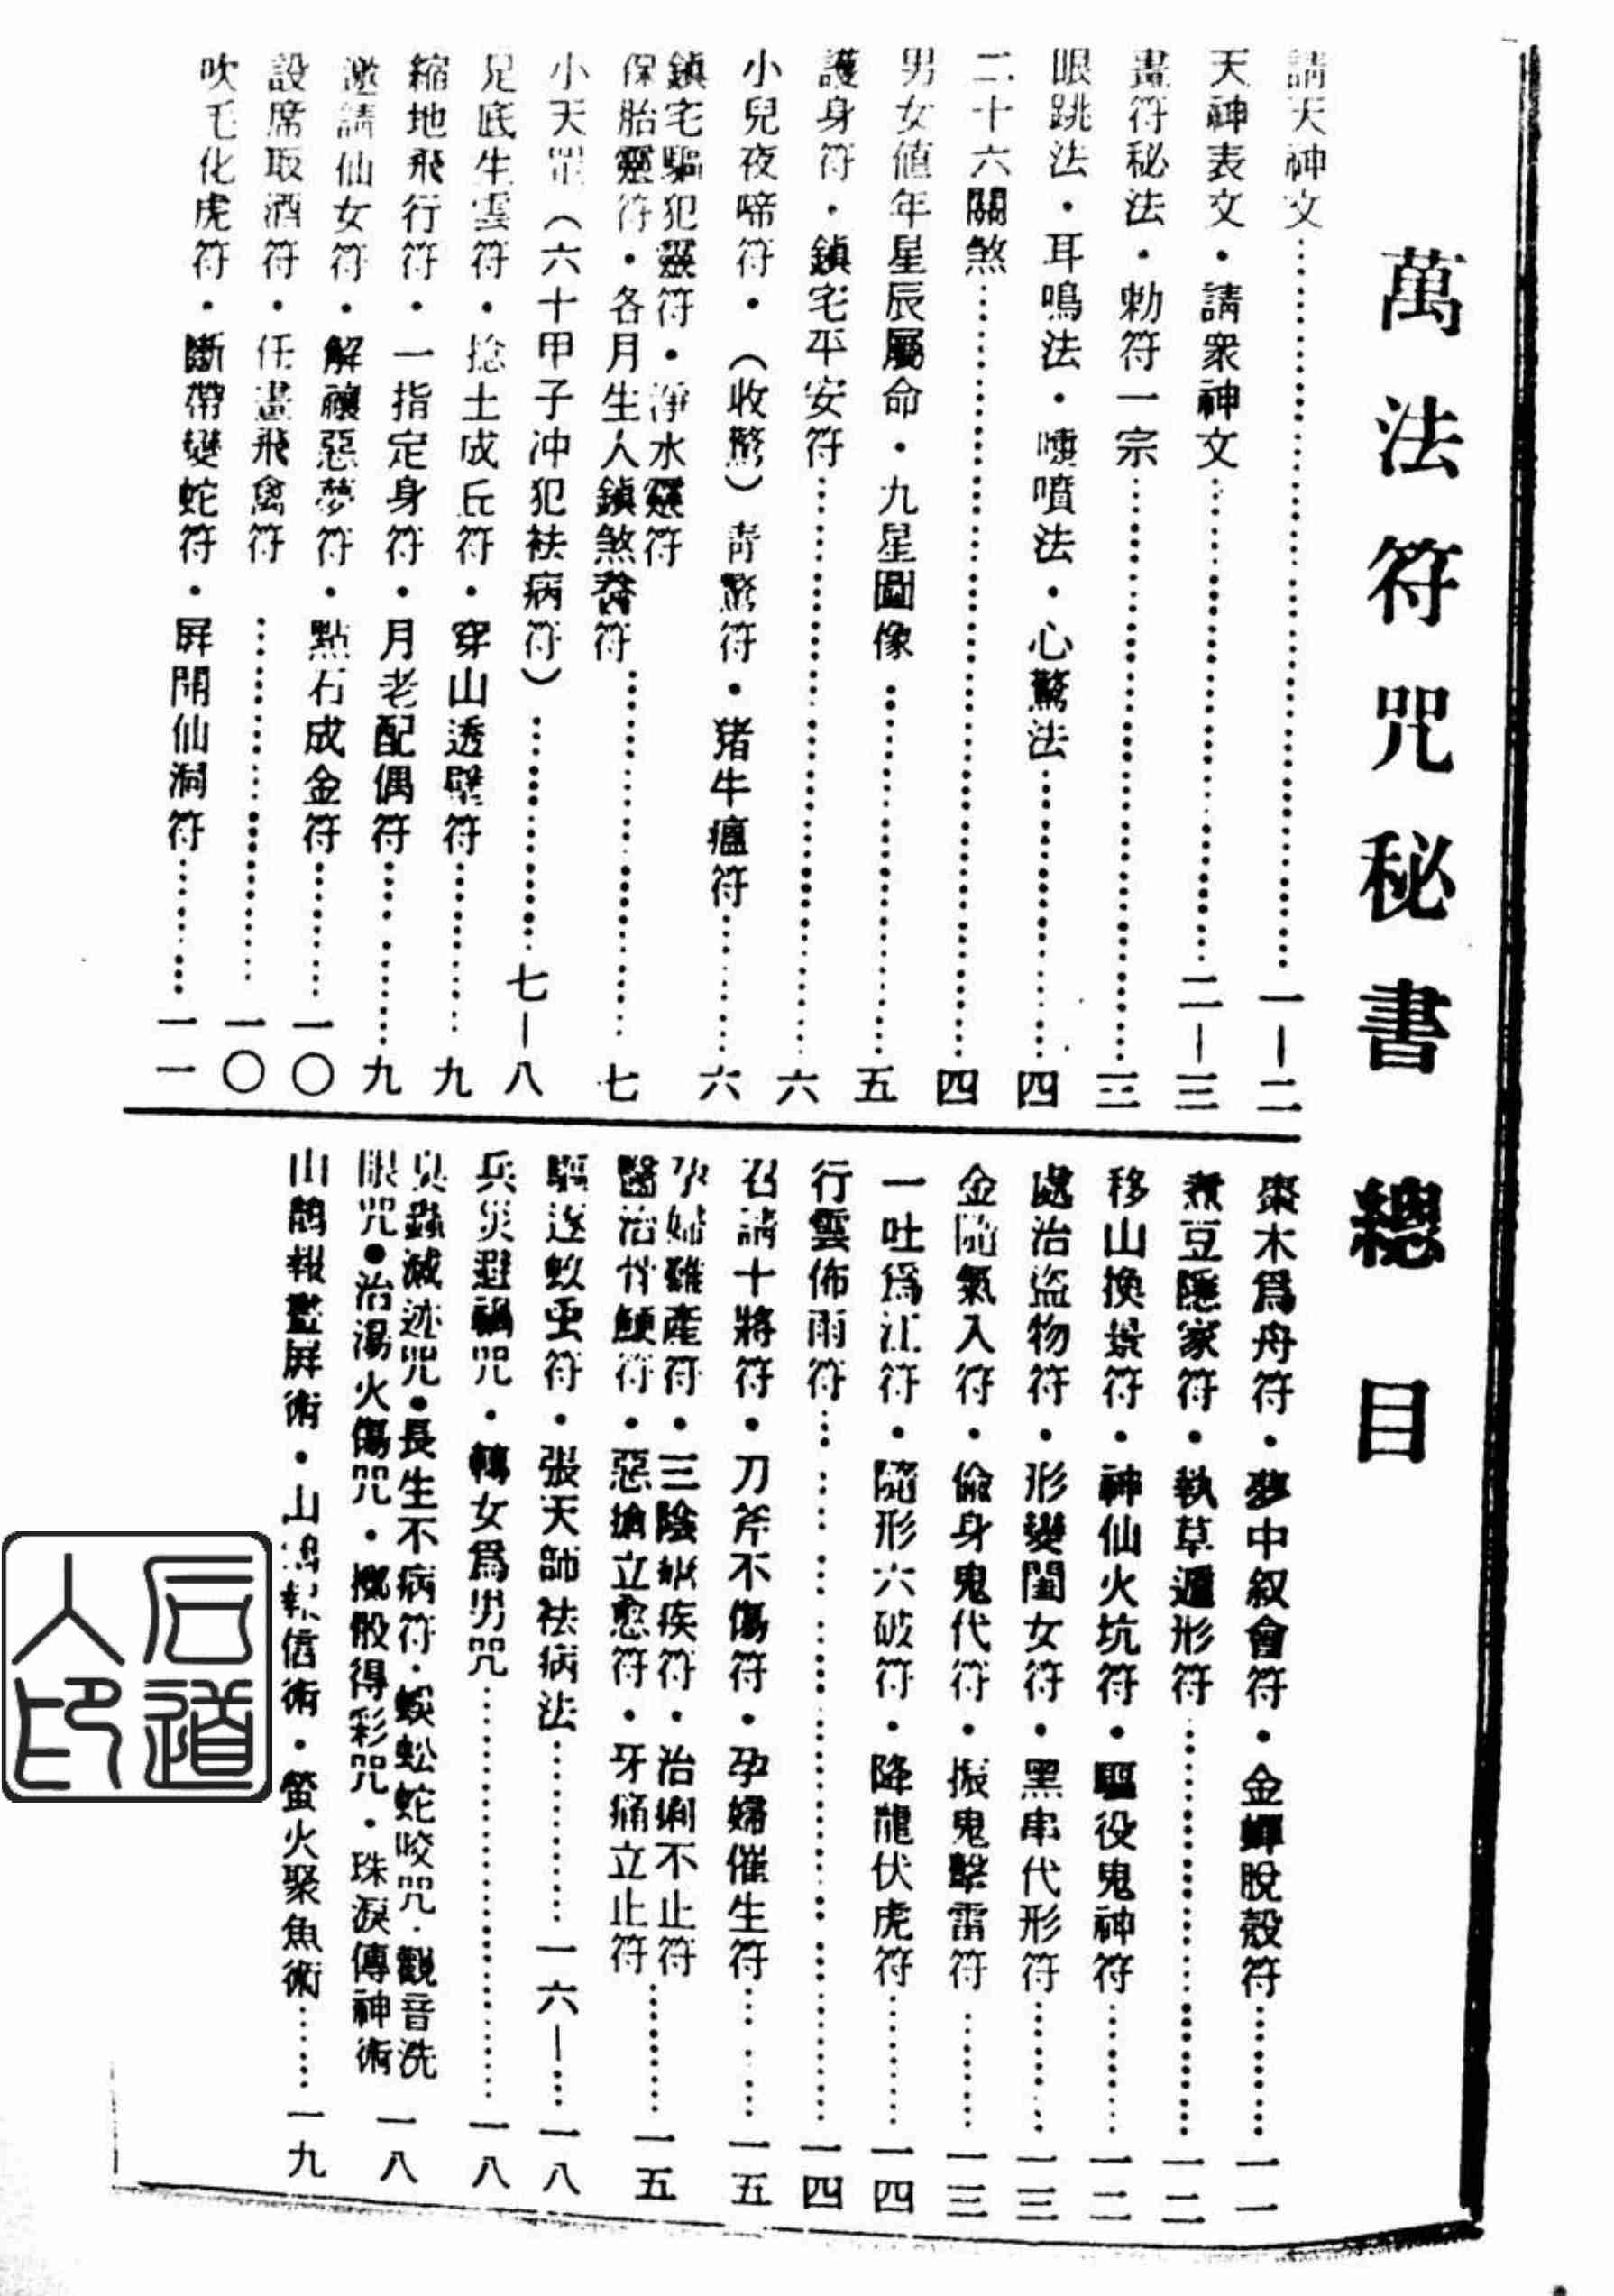 萬法符咒秘書 總目
請天神文……一—二
天神表文・請衆神文……二—三
畫符秘法・勅符一宗……三
眼跳法・耳鳴法・嚏噴法・心驚法……四
二十六關煞……四
男女值年星辰屬命・九星圖像……五
護身符・鎮宅平安符……六
小兒夜啼符・（收驚）青驚符・猪牛瘟符……六
鎮宅驅犯靈符・淨水靈符
保胎靈符・各月生人鎮煞符……七
小天罡（六十甲子冲犯袪病符）……七—八
足底生雲符・捻土成丘符・穿山透壁符……九
縮地飛行符・一指定身符・月老配偶符……九
邀請仙女符・解禳惡夢符・點石成金符……一〇
設席取酒符・任畫飛禽符……一〇
吹毛化虎符・斷帶變蛇符・屏開仙洞符……一一
棗木爲舟符・夢中叙會符・金蟬脫殼符……一一
煮豆隱家符・執草遁形符……一二
移山換景符・神仙火坑符・驅役鬼神符……一二
處治盜物符・形變閨女符・黑串代形符……一三
金隨氣入符・偷身鬼代符・振鬼擊雷符……一三
一吐爲江符・隨形六破符・降龍伏虎符……一四
行雲佈雨符……一四
召請十將符・刀斧不傷符・孕婦催生符……一五
孕婦難產符・三陰瘧疾符・治痢不止符
醫治骨鯁符・惡搶立愈符・牙痛立止符……一五
驅逐蚊虫符・張天師袪病法……一六—一八
兵災避禍咒・轉女爲男咒……一八
臭蟲滅迹咒・長生不病符・蜈蚣蛇咬咒・觀音洗
眼咒・治湯火傷咒・擲骰得彩咒・珠淚傳神術 一八
山鵲報晝屏術・山鵲報信術・螢火聚魚術……一九
后道人印